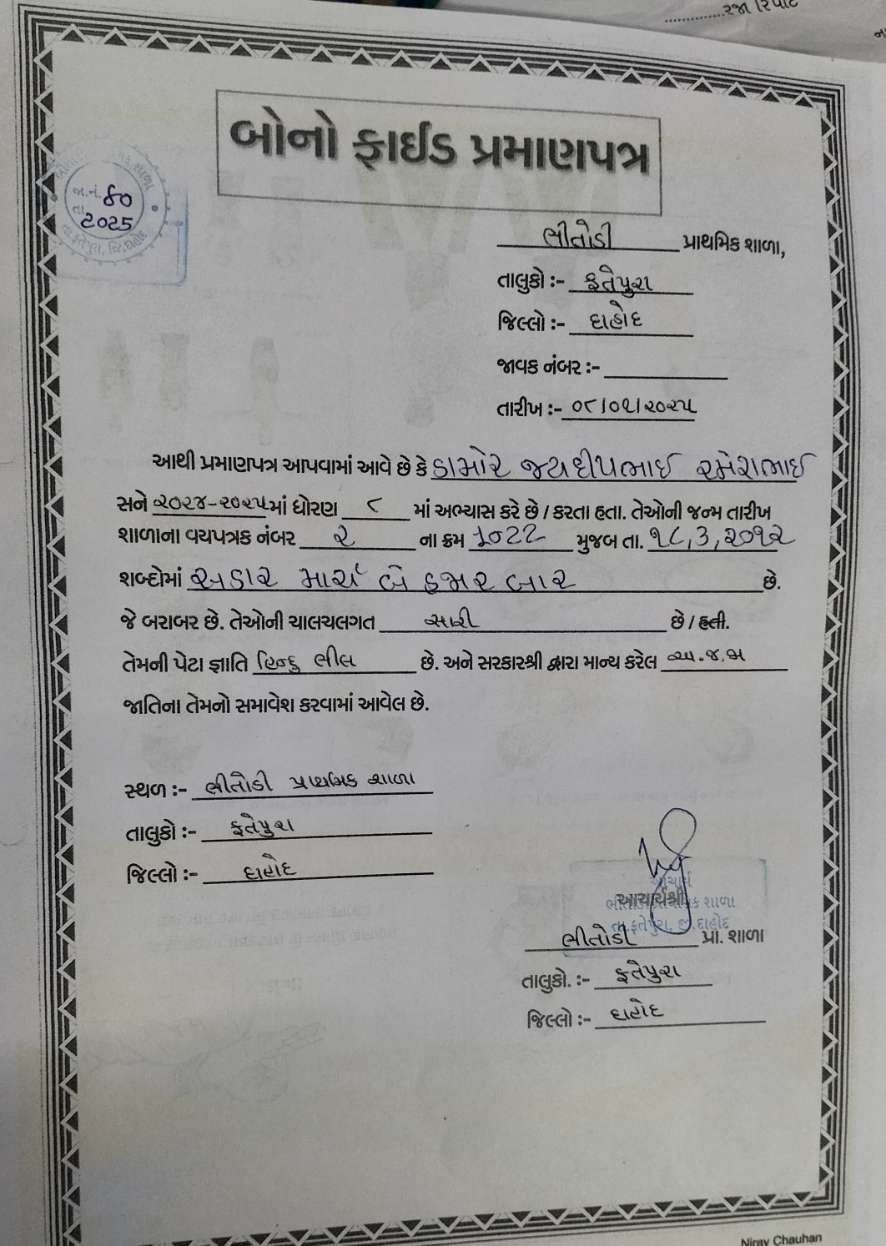 રજા રિપોર્ટ
બોનો ફાઈડ પ્રમાણપત્ર
જા.નં. 80
તા. 2025
ભીતોડી પ્રાથમિક શાળા,
તાલુકો :- ફતેપુરા
જિલ્લો :- દાહોદ
જાવક નંબર :-
તારીખ :- ૦૮/૦૧/૨૦૨૫
આથી પ્રમાણપત્ર આપવામાં આવે છે કે ડામોર જયદીપભાઈ રમેશભાઈ
સને ૨૦૨૪-૨૦૨૫માં ધોરણ ૮ માં અભ્યાસ કરે છે / કરતા હતા. તેઓની જન્મ તારીખ
શાળાના વયપત્રક નંબર ૨ ના ક્રમ ૧૦૨૨ મુજબ તા. ૧૮,૩,૨૦૧૨
શબ્દોમાં અઢાર માર્ચ બે હજાર બાર છે.
જે બરાબર છે. તેઓની ચાલચલગત સારી છે / હતી.
તેમની પેટા જ્ઞાતિ હિન્દુ ભીલ છે. અને સરકારશ્રી દ્વારા માન્ય કરેલ અ.જ.જા
જાતિના તેમનો સમાવેશ કરવામાં આવેલ છે.
સ્થળ :- ભીતોડી પ્રાથમિક શાળા
તાલુકો :- ફતેપુરા
જિલ્લો :- દાહોદ
આચાર્ય
આચાર્યશ્રી
તા.ફતેપુરા, જી.દાહોદ
ભીતોડી પ્રા. શાળા
તાલુકો. :- ફતેપુરા
જિલ્લો :- દાહોદ
Nirav Chauhan